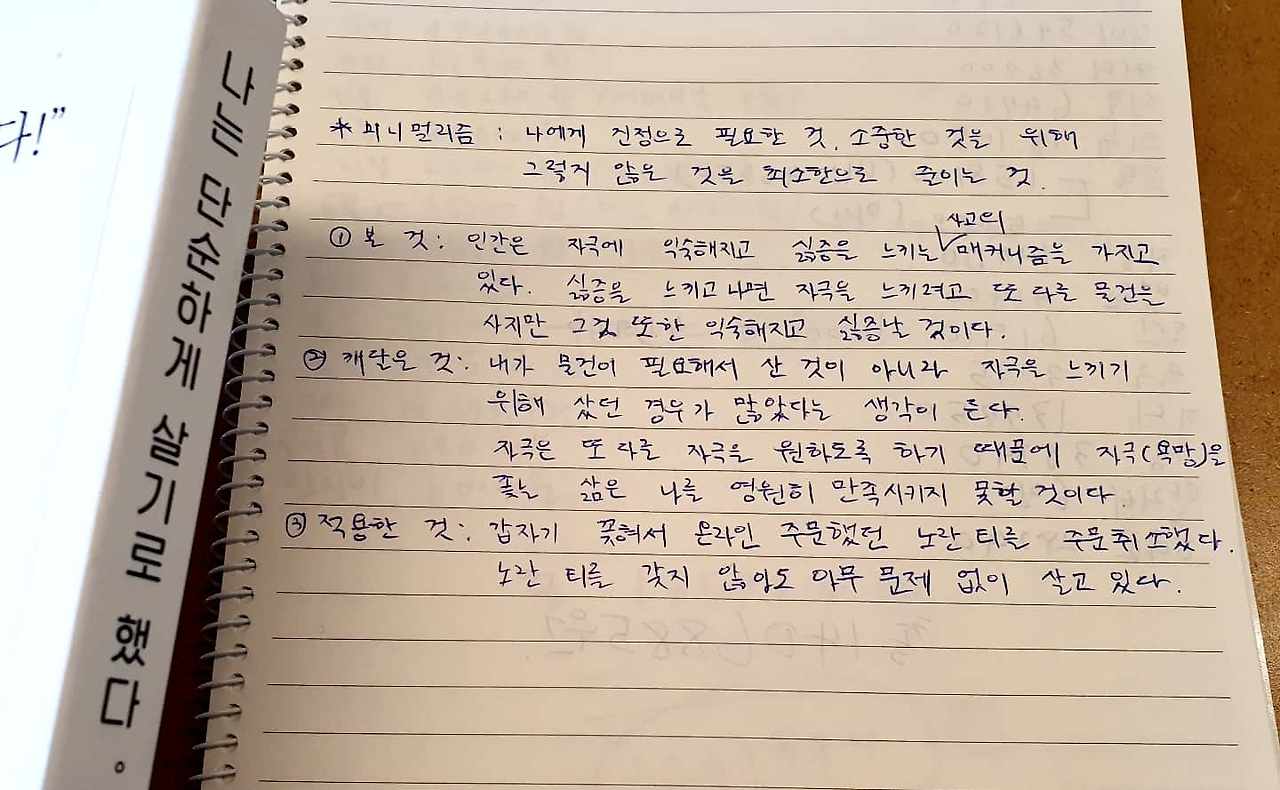 다!”
나는 단순하게 살기로 했다.
* 미니멀리즘 : 나에게 진정으로 필요한 것, 소중한 것을 위해
그렇지 않은 것을 최소한으로 줄이는 것.
① 본 것 : 인간은 자극에 익숙해지고 싫증을 느끼는 사고의 매커니즘을 가지고
있다. 싫증을 느끼고 나면 자극을 느끼려고 또 다른 물건을
사지만 그것 또한 익숙해지고 싫증날 것이다.
② 깨달은 것 : 내가 물건이 필요해서 산 것이 아니라 자극을 느끼기
위해 샀던 경우가 많았다는 생각이 든다.
자극은 또 다른 자극을 원하도록 하기 때문에 자극(욕망)을
쫓는 삶은 나를 영원히 만족시키지 못할 것이다.
③ 적용한 것 : 갑자기 꽂혀서 온라인 주문했던 노란 티를 주문취소했다.
노란 티를 갖지 않아도 아무 문제 없이 살고 있다.